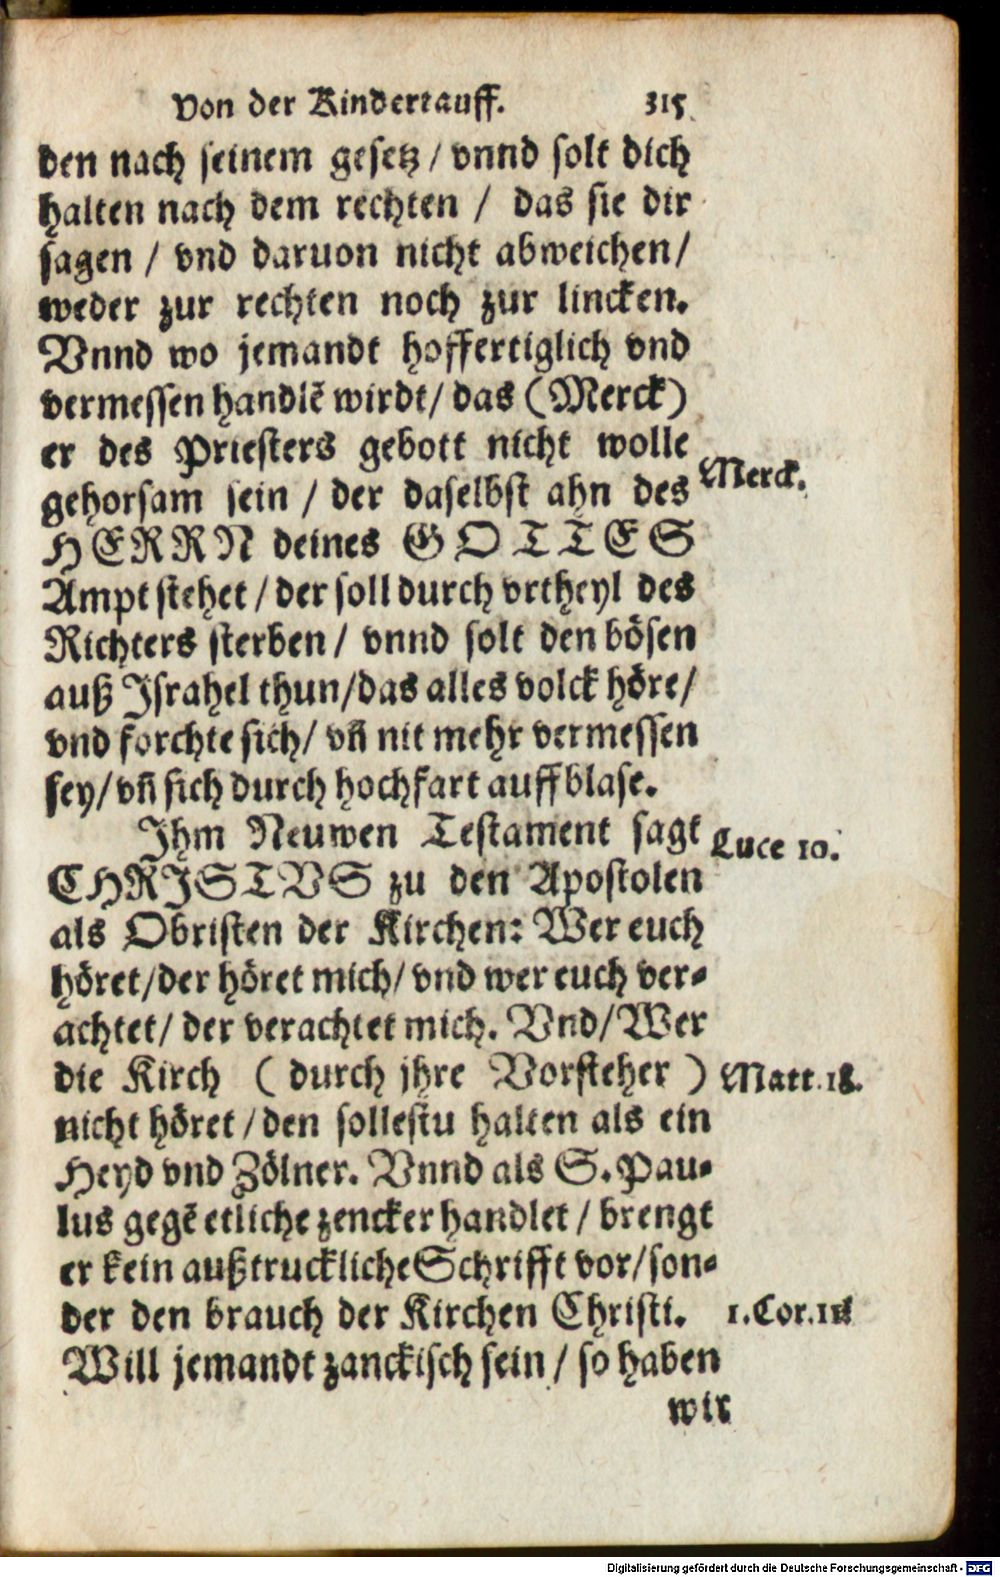 Von der Kindertauff. 315
den nach seinem gesetz / vnnd solt dich
halten nach dem rechten / das sie dir
sagen / vnd daruon nicht abweichen/
weder zur rechten noch zur lincken.
Vnnd wo jemandt hoffertiglich vnd
vermessen handlē wirdt/ das (Merck)
er des Priesters gebott nicht wolle
Merck.
gehorsam sein / der daselbst ahn des
HERRN deines GOTTES
Ampt stehet / der soll durch vrtheyl des
Richters sterben / vnnd solt den bösen
auß Israhel thun/das alles volck höre/
vnd forchte sich/ vñ nit mehr vermessen
sey/vñ sich durch hochfart auffblase.
Ihm Neuwen Testament sagt
Luce 10.
CHRISTVS zu den Apostolen
als Obristen der Kirchen: Wer euch
höret/der höret mich/ vnd wer euch ver-
achtet/ der verachtet mich. Vnd/Wer
die Kirch ( durch jhre Vorsteher )
Matt.18.
nicht höret / den sollestu halten als ein
Heyd vnd Zölner. Vnnd als S. Pau-
lus gegē etliche zencker handlet / brengt
er kein außtruckliche Schrifft vor/son-
der den brauch der Kirchen Christi.
1.Cor.11
Will jemandt zanckisch sein / so haben
wir
Digitalisierung gefördert durch die Deutsche Forschungsgemeinschaft - DFG